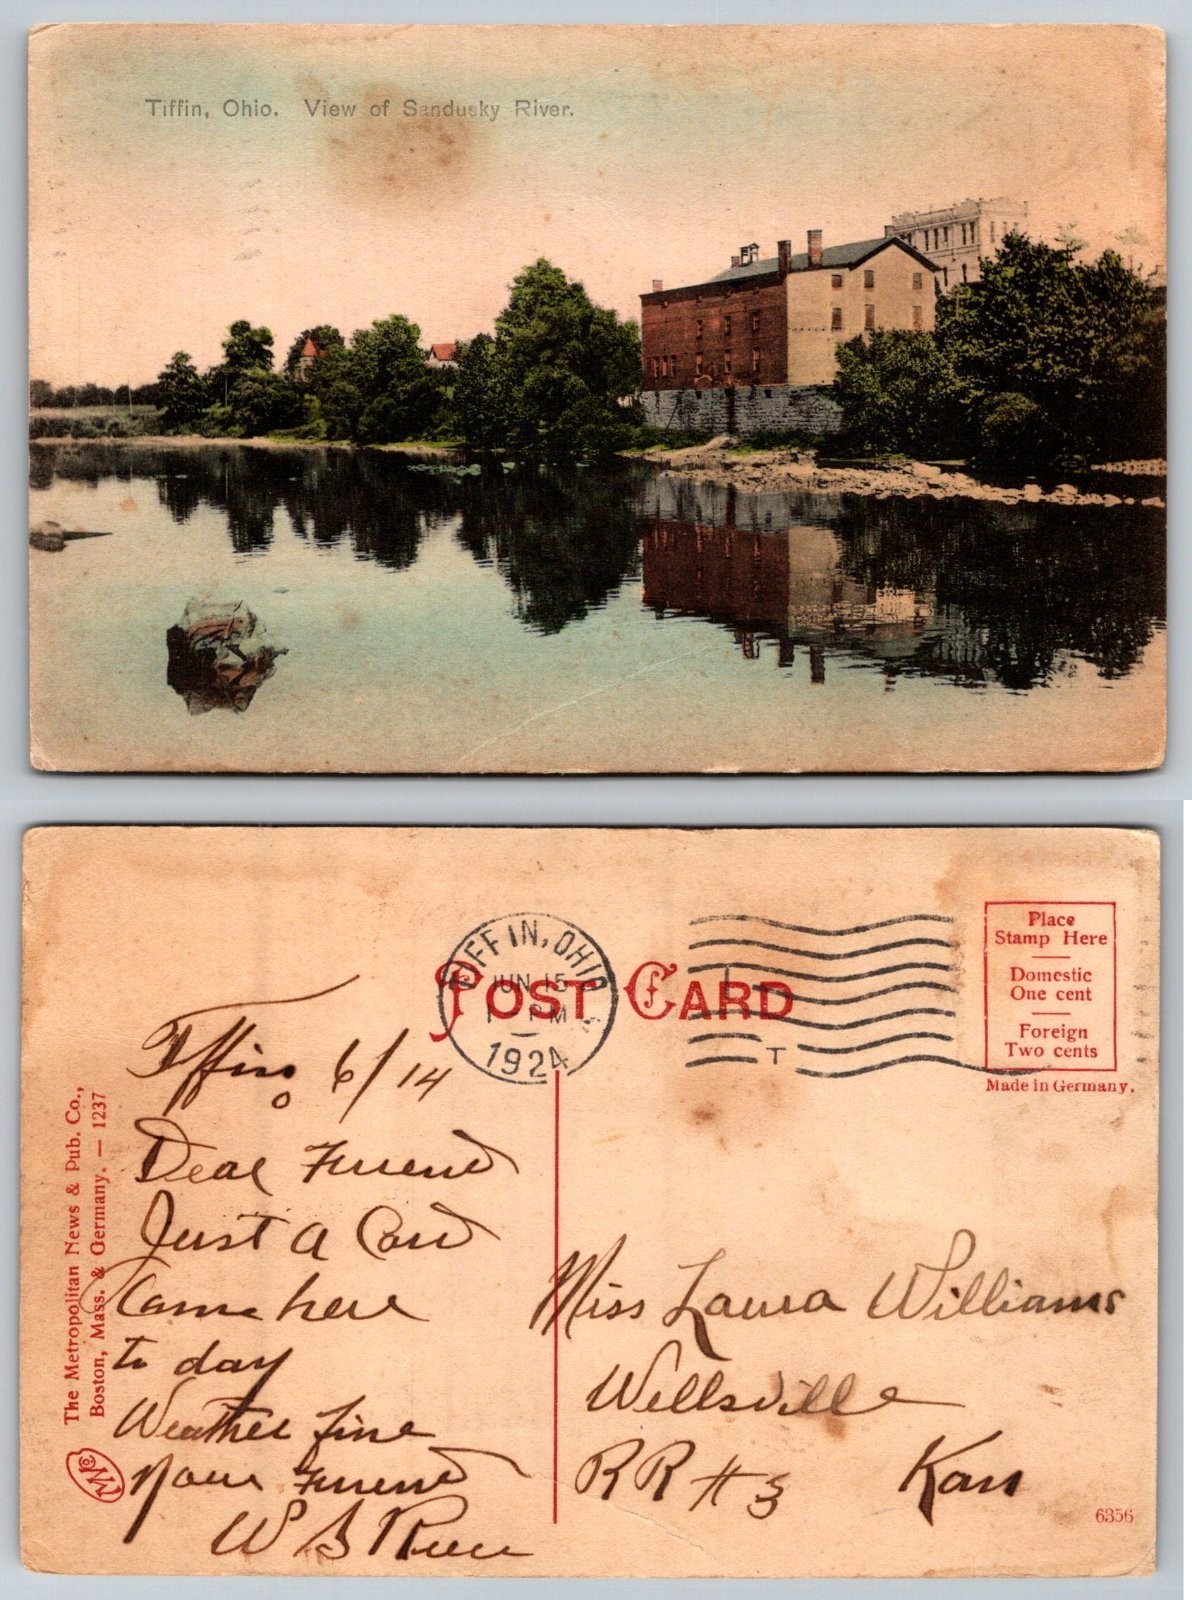 Tiffin, Ohio. View of Sandusky River.
POST CARD
TIFFIN, OHIO
JUN 15
PM
1924
T
Place
Stamp Here
Domestic
One cent
Foreign
Two cents
Made in Germany.
The Metropolitan News & Pub. Co.,
Boston, Mass. & Germany. — 1237
Tiffin O 6/14
Dear Friend
Just a Card
Came here
to day
Weather fine
Your Friend
W S
Miss Laura Williams
Wellsville
RR # 3 Kans
6356